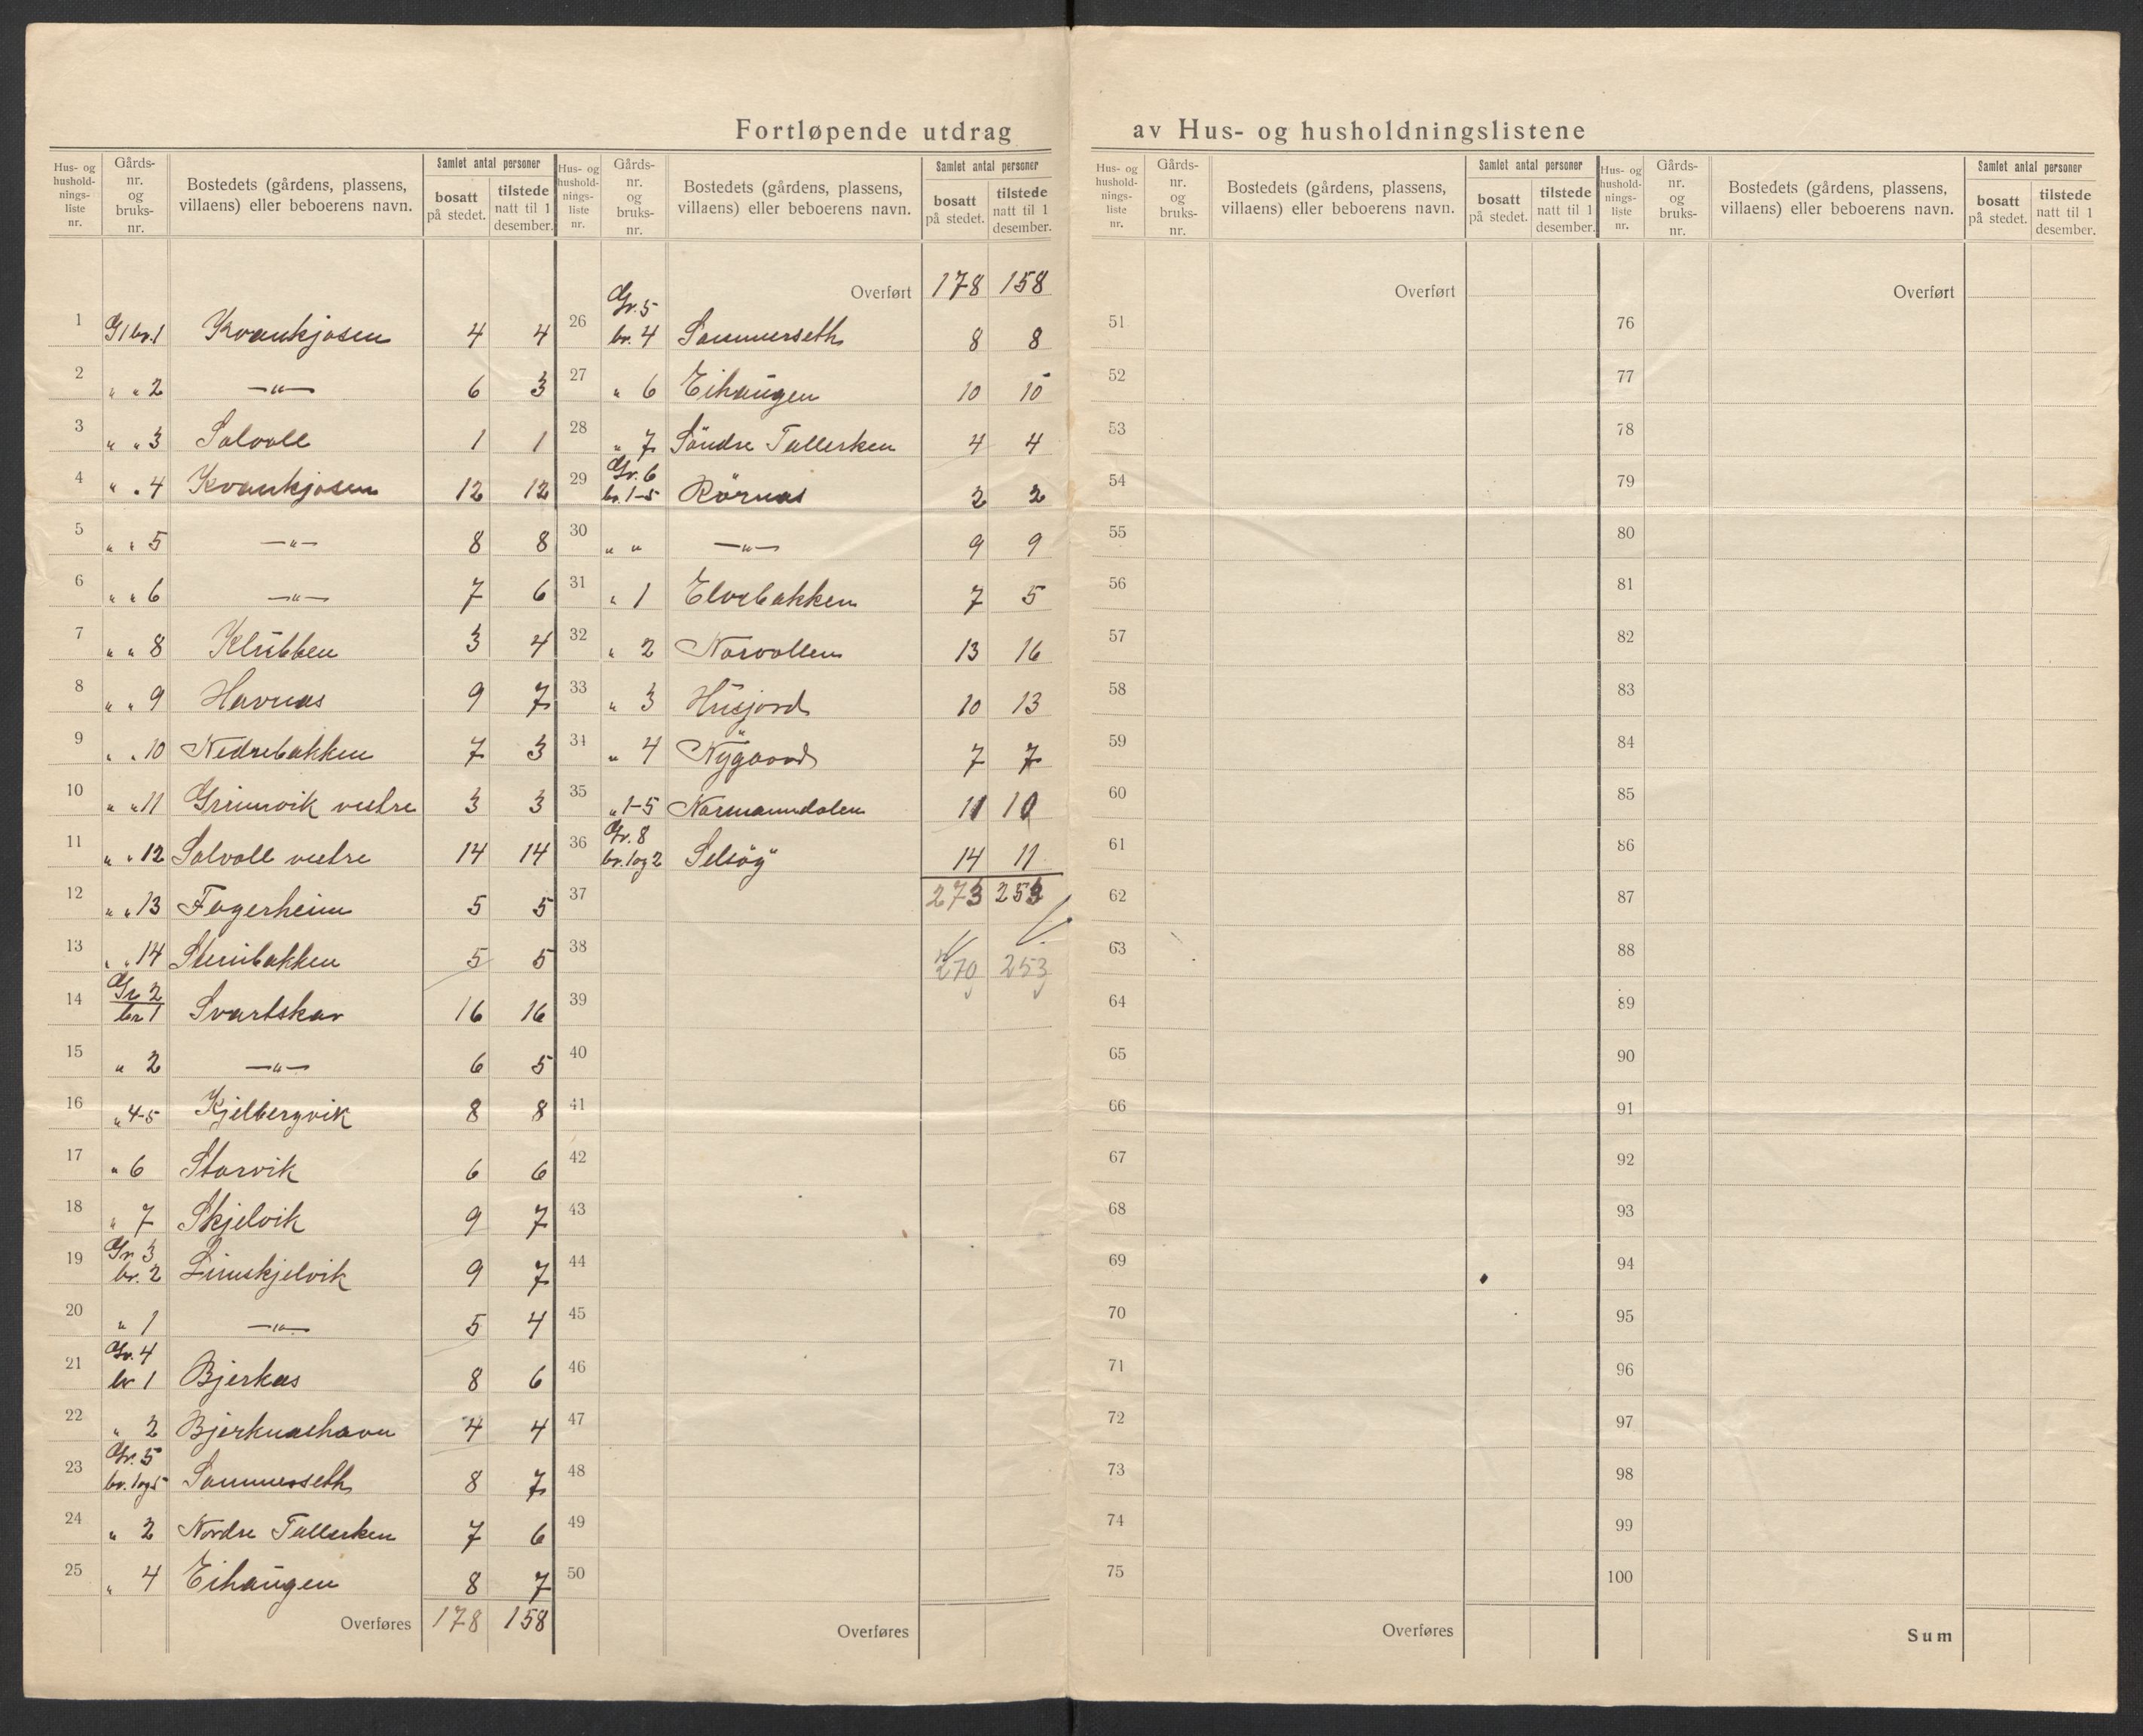 Fortløpende utdrag av Hus- og husholdningslistene
Hus- og hushold-nings-liste nr. Gårds-nr. og bruks-nr. Bostedets (gårdens, plassens, villaens) eller beboerens navn. Samlet antal personer bosatt på stedet. tilstede natt til 1 desember.
1 G1 br.1 Kvankjosen 4 4
2 " " 2 —"— 6 3
3 " " 3 Solvoll 1 1
4 " " 4 Kvankjosen 12 12
5 " " 5 —"— 8 8
6 " " 6 —"— 7 6
7 " " 8 Klubben 3 4
8 " " 9 Havnæs 9 7
9 " " 10 Nedrebakken 7 3
10 " " 11 Grimvik vestre 3 3
11 " " 12 Solvoll vestre 14 14
12 " " 13 Fagerheim 5 5
13 " " 14 Stenbakken 5 5
14 Gr 2 br 1 Svartskar 16 16
15 " 2 —"— 6 5
16 " 4-5 Kjelbergvik 8 8
17 " 6 Storvik 6 6
18 " 7 Skjelvik 9 7
19 Gr. 3 br. 2 Linskjelvik 9 7
20 " 1 —"— 5 4
21 Gr. 4 br 1 Bjerkås 8 6
22 " 2 Bjerknashavn 4 4
23 Gr. 5 br. 1 og 5 Sommerseth 8 7
24 " 2 Nordre Tallerken 7 6
25 " 4 Eihaugen 8 7
Overføres 178 158
Hus- og hushold-nings-liste nr. Gårds-nr. og bruks-nr. Bostedets (gårdens, plassens, villaens) eller beboerens navn. Samlet antal personer bosatt på stedet. tilstede natt til 1 desember.
Overført 178 158
26 Gr. 5 br. 4 Sommerseth 8 8
27 " 6 Eihaugen 10 10
28 " 7 Söndre Tallerken 4 4
29 Gr. 6 br. 1-5 Rörnes 2 2
30 " " —"— 9 9
31 " 1 Elvebakken 7 5
32 " 2 Norvollen 13 16
33 " 3 Husjord 10 13
34 " 4 Nygaard 7 7
35 " 1-5 Normanndalen 11 10
36 Gr. 8 br. 1 og 2 Selsöy 14 11
37 273 253
38 270 253
39
40
41
42
43
44
45
46
47
48
49
50
Overføres
Hus- og hushold-nings-liste nr. Gårds-nr. og bruks-nr. Bostedets (gårdens, plassens, villaens) eller beboerens navn. Samlet antal personer bosatt på stedet. tilstede natt til 1 desember.
Overført
51
52
53
54
55
56
57
58
59
60
61
62
63
64
65
66
67
68
69
70
71
72
73
74
75
Overføres
Hus- og hushold-nings-liste nr. Gårds-nr. og bruks-nr. Bostedets (gårdens, plassens, villaens) eller beboerens navn. Samlet antal personer bosatt på stedet. tilstede natt til 1 desember.
Overført
76
77
78
79
80
81
82
83
84
85
86
87
88
89
90
91
92
93
94
95
96
97
98
99
100
Sum